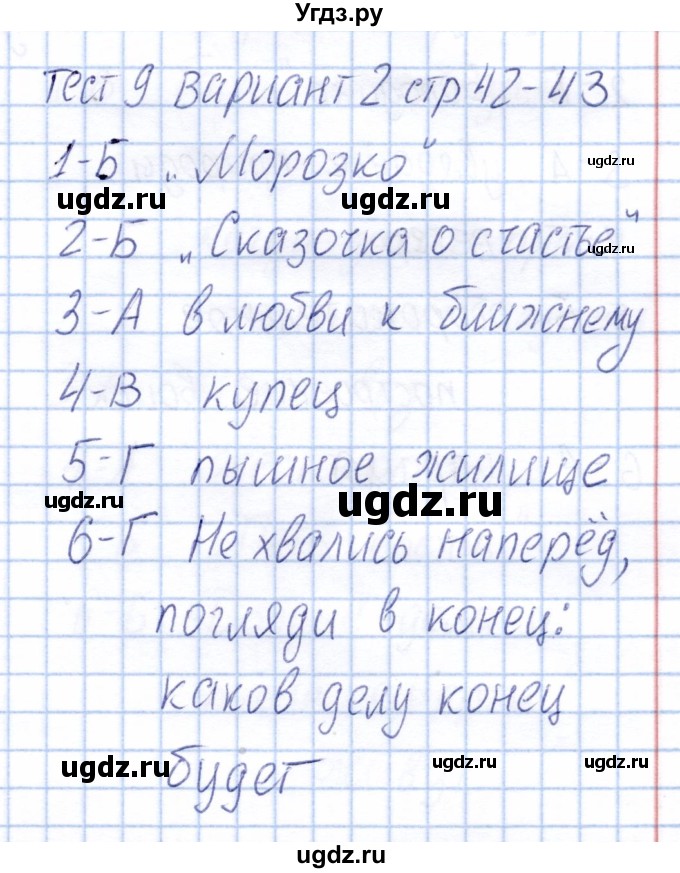 Угдз.ру
Тест 9 Вариант 2 стр 42-43
1-Б „Морозко"
ugdz.ru ugdz.ru ugdz.ru
2-Б „Сказочка о счастье"
ugdz.ru
3-А в любви к ближнему
4-В купец
5-Г пышное жилище
ugdz.ru ugdz.ru ugdz.ru
6-Г Не хвались наперёд,
погляди в конец:
каков делу конец
ugdz.ru ugdz.ru ugdz.ru
будет
ugdz.ru